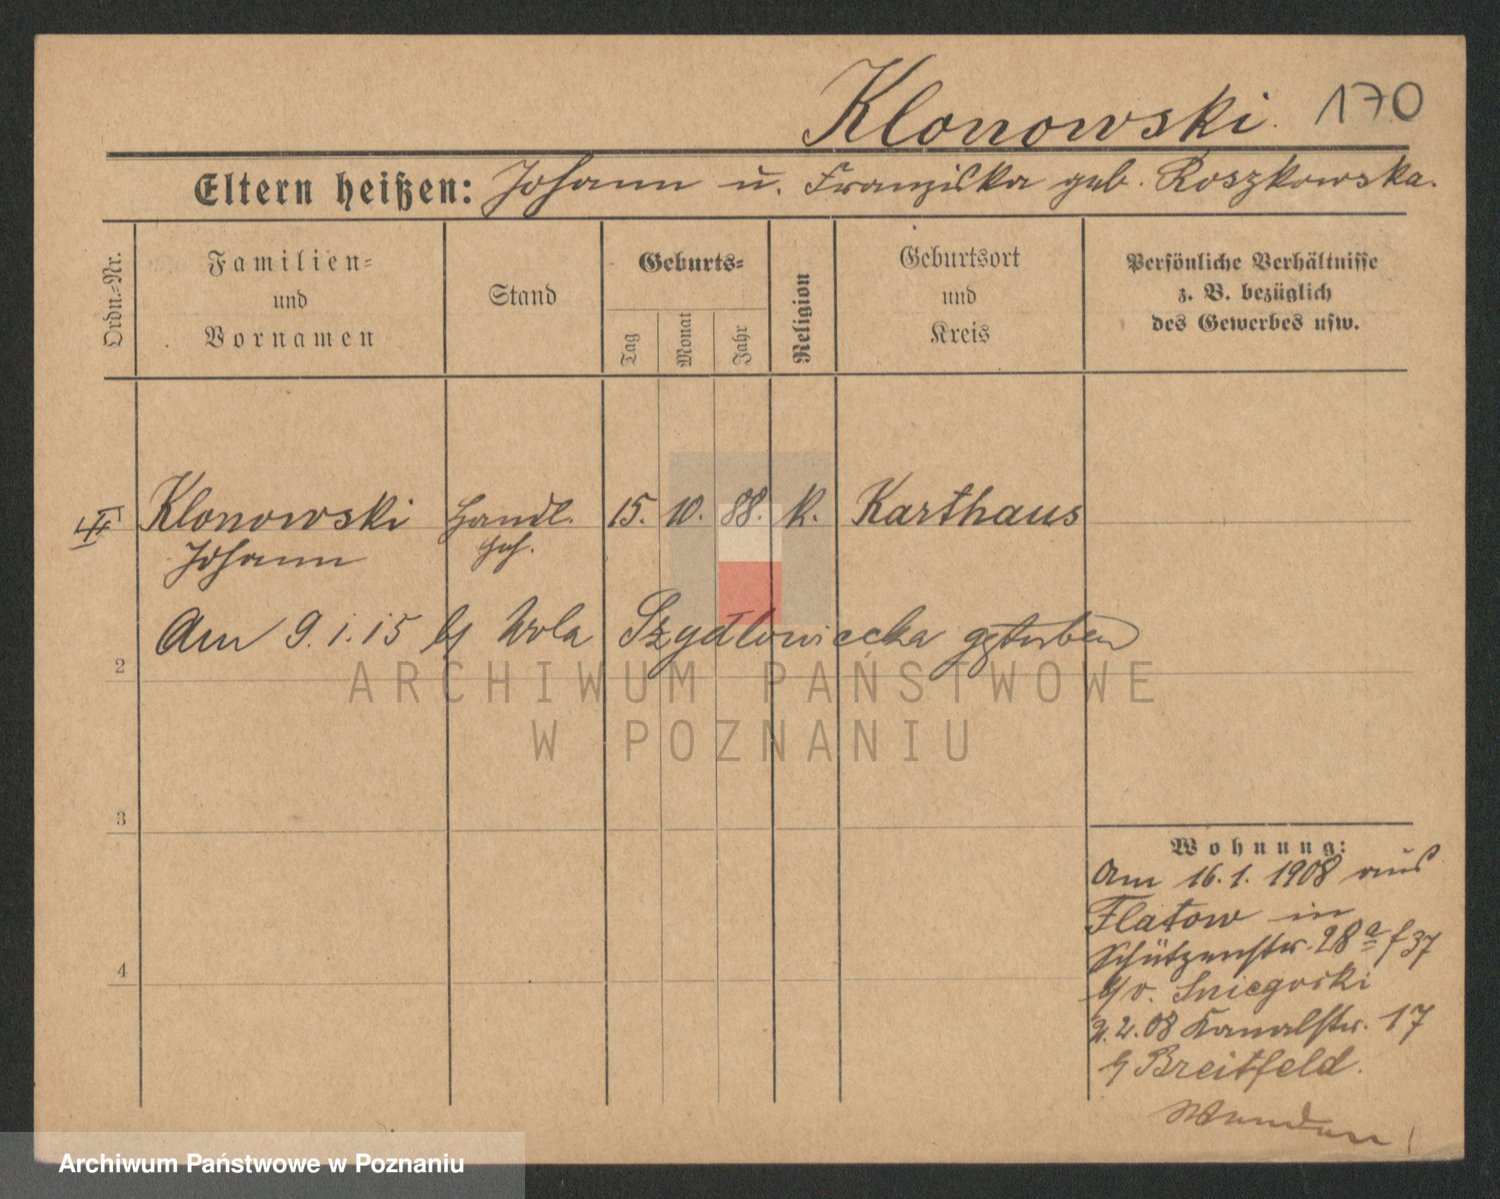 Klonowski. 170
Eltern heißen: Johann u. Franziska geb. Roszkowska.
Ordn.-Nr.
Familien-
und
Vornamen
Stand
Geburts-
Tag
Monat
Jahr
Religion
Geburtsort
und
Kreis
Persönliche Verhältnisse
z. B. bezüglich
des Gewerbes usw.
Klonowski Handl. 15. 10. 88. k. Karthaus
Johann Geh.
Am 9.1.15 bei Wola Szydlowiecka gestorben
2
3
4
Wohnung:
Am 16.1.1908 aus
Flatow in
Schützenstr. 28a
b/v. Sniegocki
2.08 Kanalstr. 17
b/ Breitfeld.
ARCHIWUM PAŃSTWOWE
W POZNANIU
Archiwum Państwowe w Poznaniu